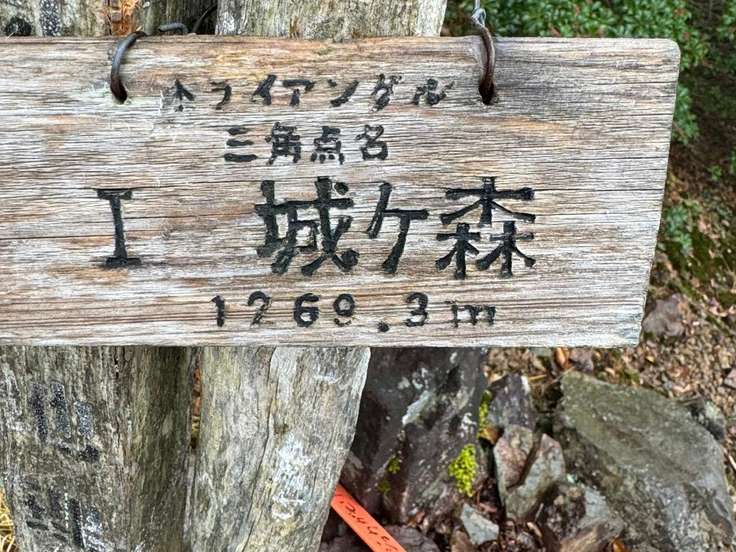 トライアングル
三角点名
I 城ケ森
1269.3m